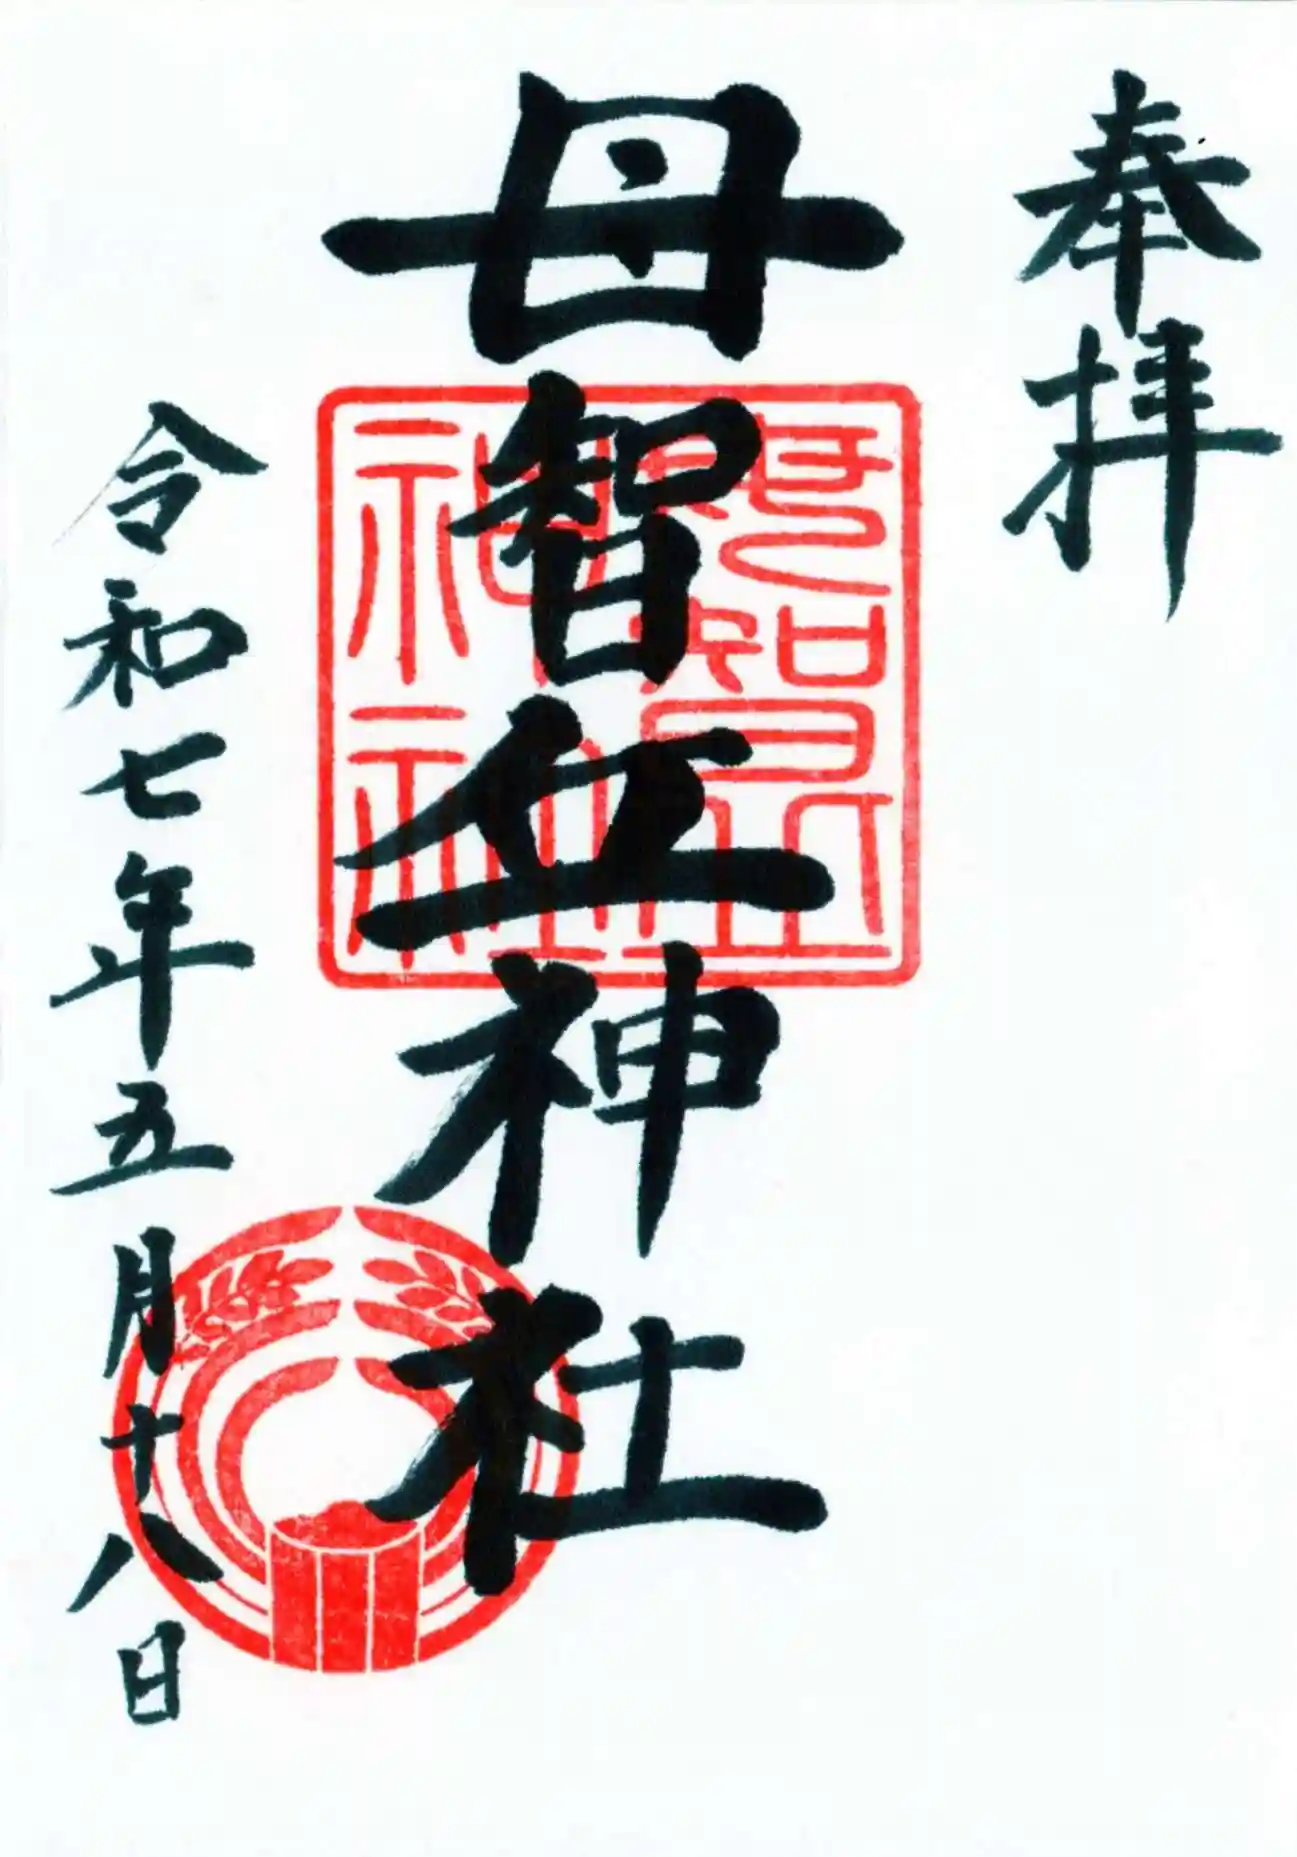 奉拝
母智丘神社
母智丘
神社
令和七年五月十八日